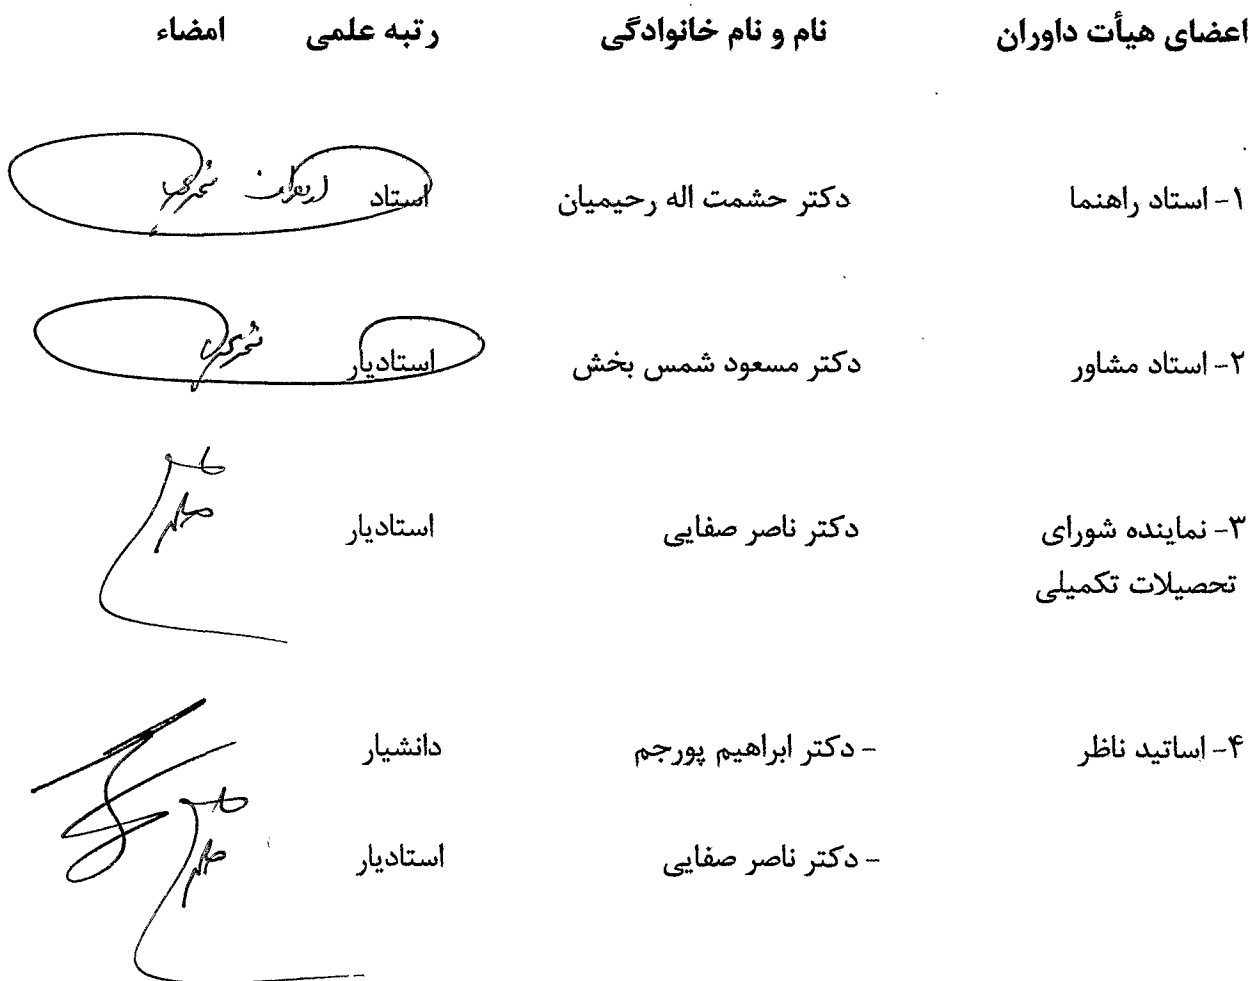 اعضای هیأت داوران نام و نام خانوادگی رتبه علمی امضاء
۱- استاد راهنما دکتر حشمت اله رحیمیان استاد
۲- استاد مشاور دکتر مسعود شمس بخش استادیار
۳- نماینده شورای دکتر ناصر صفایی استادیار
تحصیلات تکمیلی
۴- اساتید ناظر - دکتر ابراهیم پورجم دانشیار
- دکتر ناصر صفایی استادیار